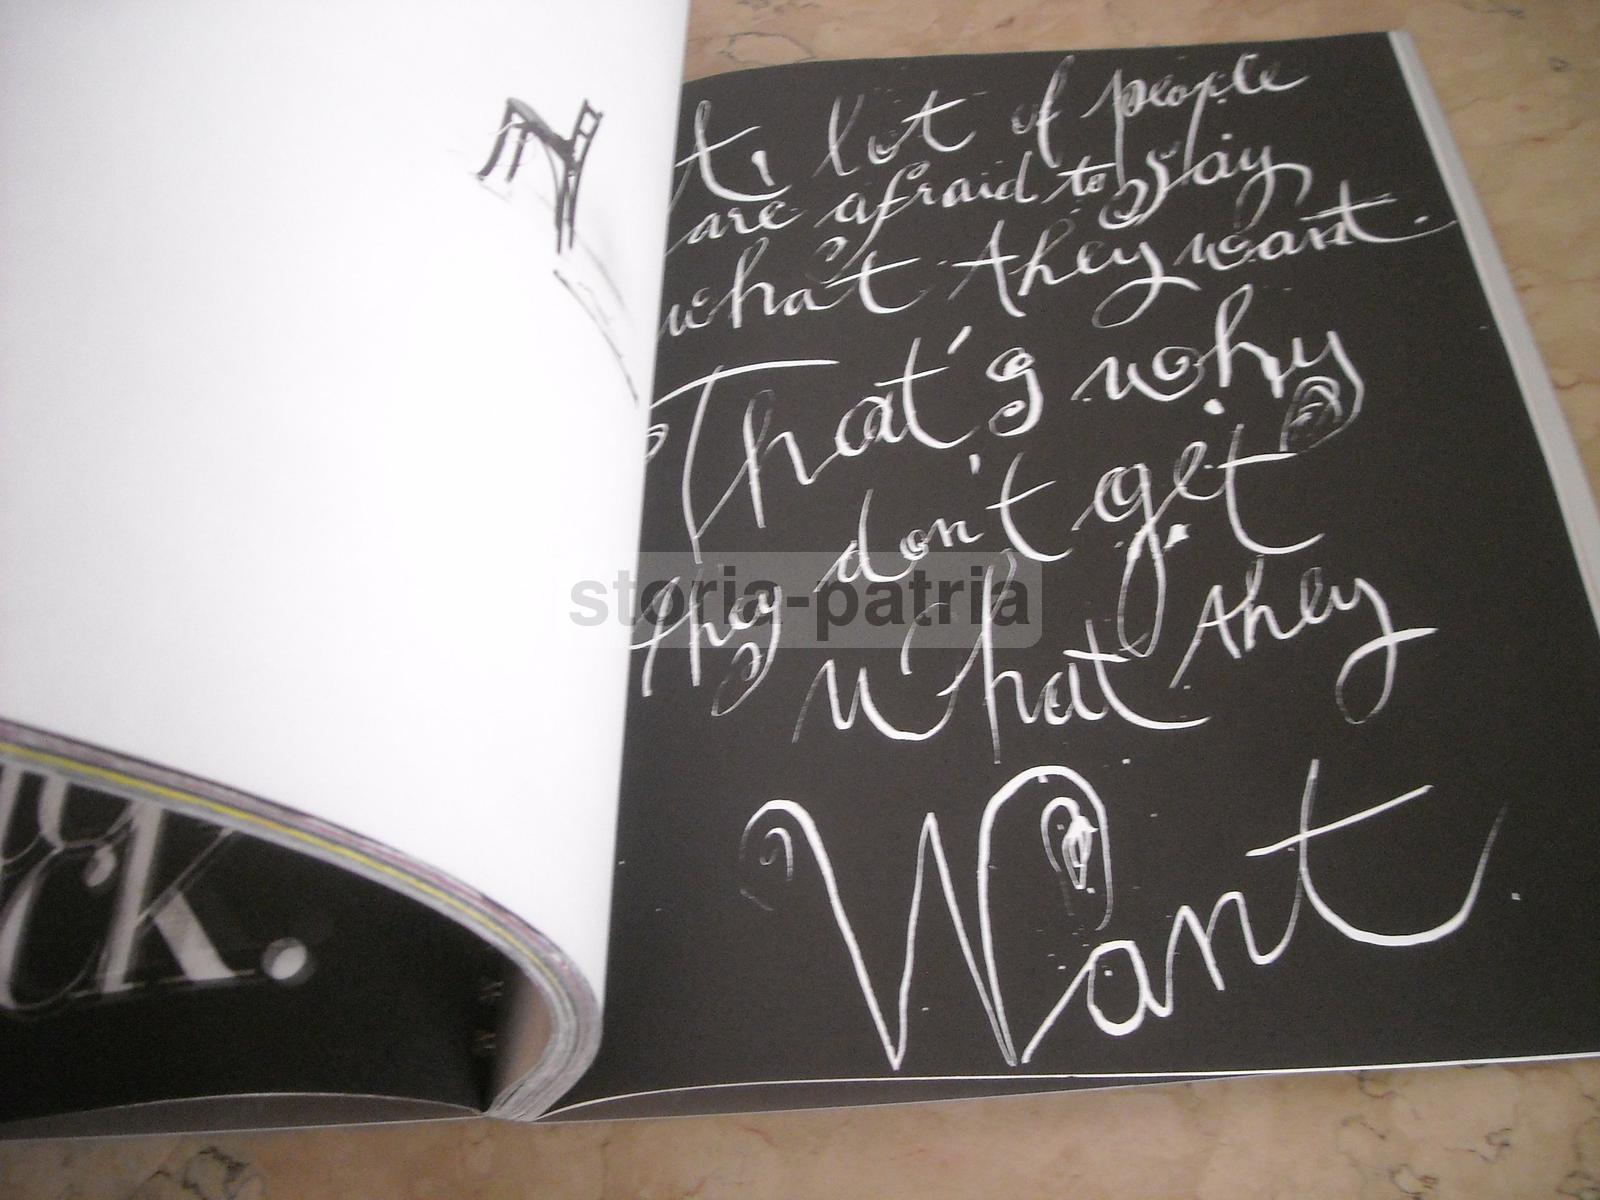 N
A lot of people
are afraid to say
what they want.
That's why
they don't get
what they
Want
storia-patria
CK.